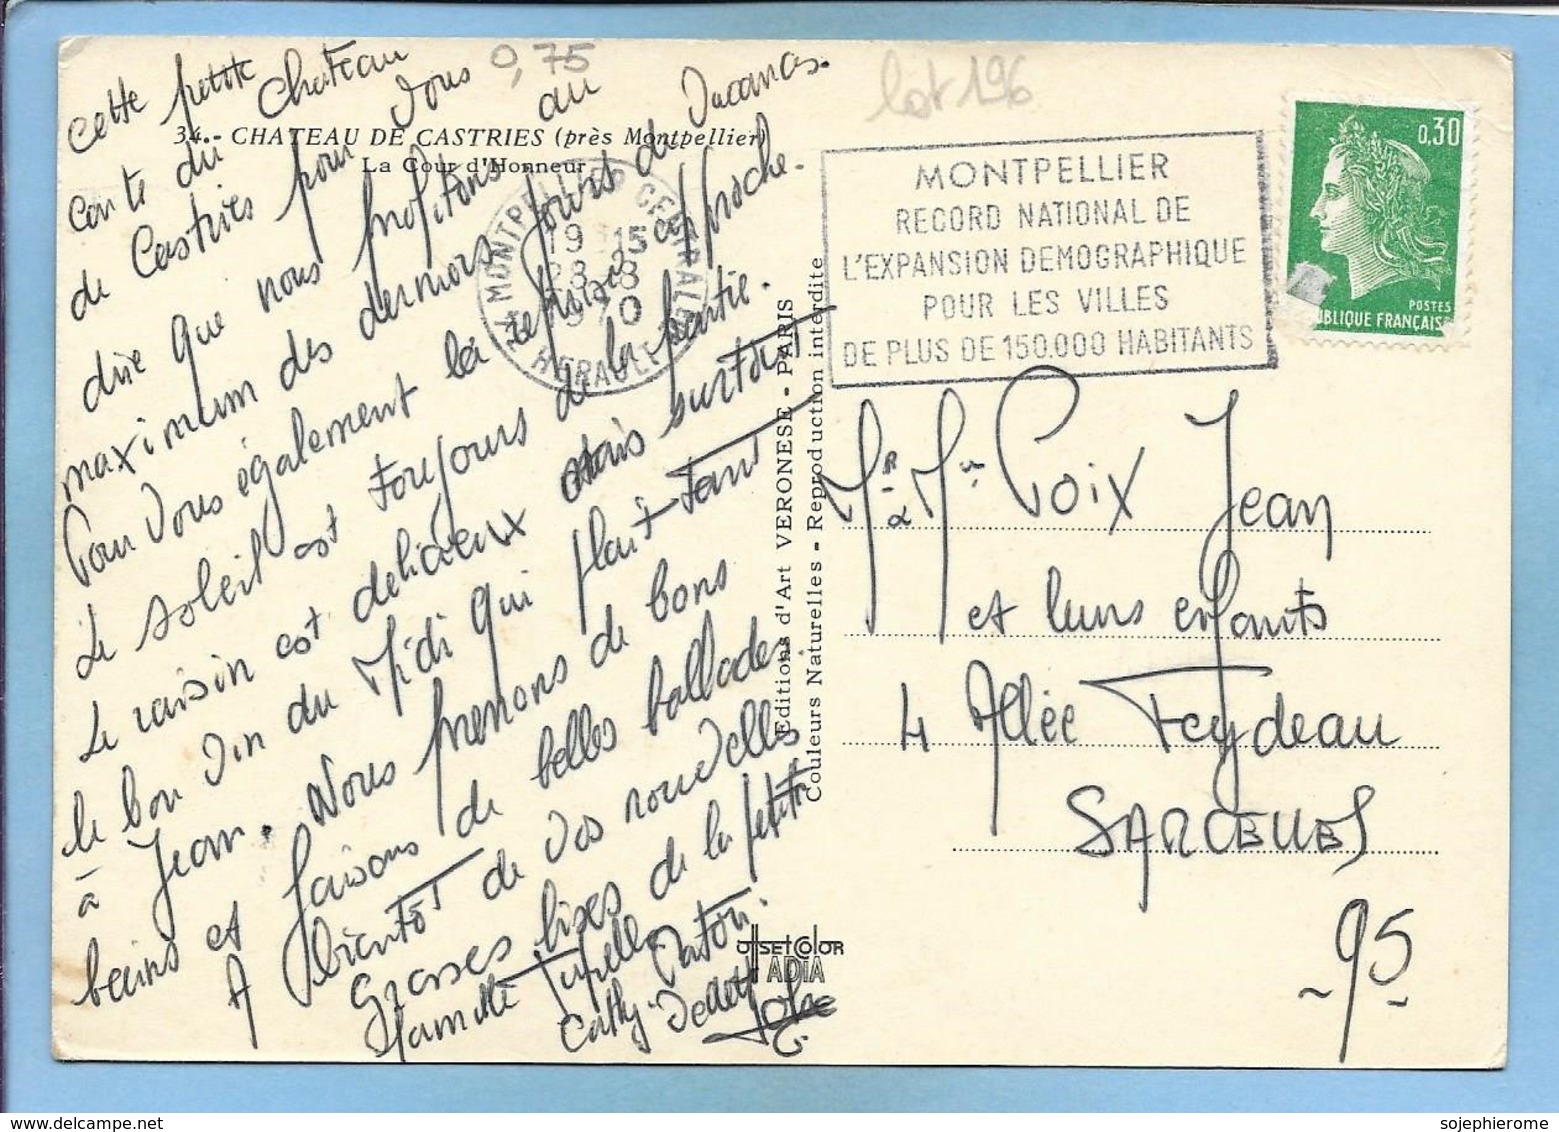 cette petite
carte du Chateau
de Castries pour vous
dire que nous profitons au
maximum des derniers jours de vacances.
Pour vous également la approche.
Le soleil est toujours de la partie.
Le raisin est delicieux mais surtout
le bon vin du Midi qui plait tant
à Jean. Nous prenons de bons
bains et faisons de belles ballades.
A bientôt de vos nouvelles
Grosses bises de la petite
famille
Cathy
0,75
34. - CHATEAU DE CASTRIES (près Montpellier)
La Cour d'Honneur
lot 196
MONTPELLIER CENTRALE
19 15
28-8
1970
HERAULT
MONTPELLIER
RECORD NATIONAL DE
L'EXPANSION DEMOGRAPHIQUE
POUR LES VILLES
DE PLUS DE 150.000 HABITANTS
0,30
POSTES
UBLIQUE FRANÇAISE
Editions d'Art VERONESE - PARIS
Couleurs Naturelles - Reproduction interdite
Mr & Mme Poix Jean
et leurs enfants
4 Allée Feydeau
SARCELLES
- 95 -
OFFSET COLOR
ADIA
sojephierome
delcampe.net